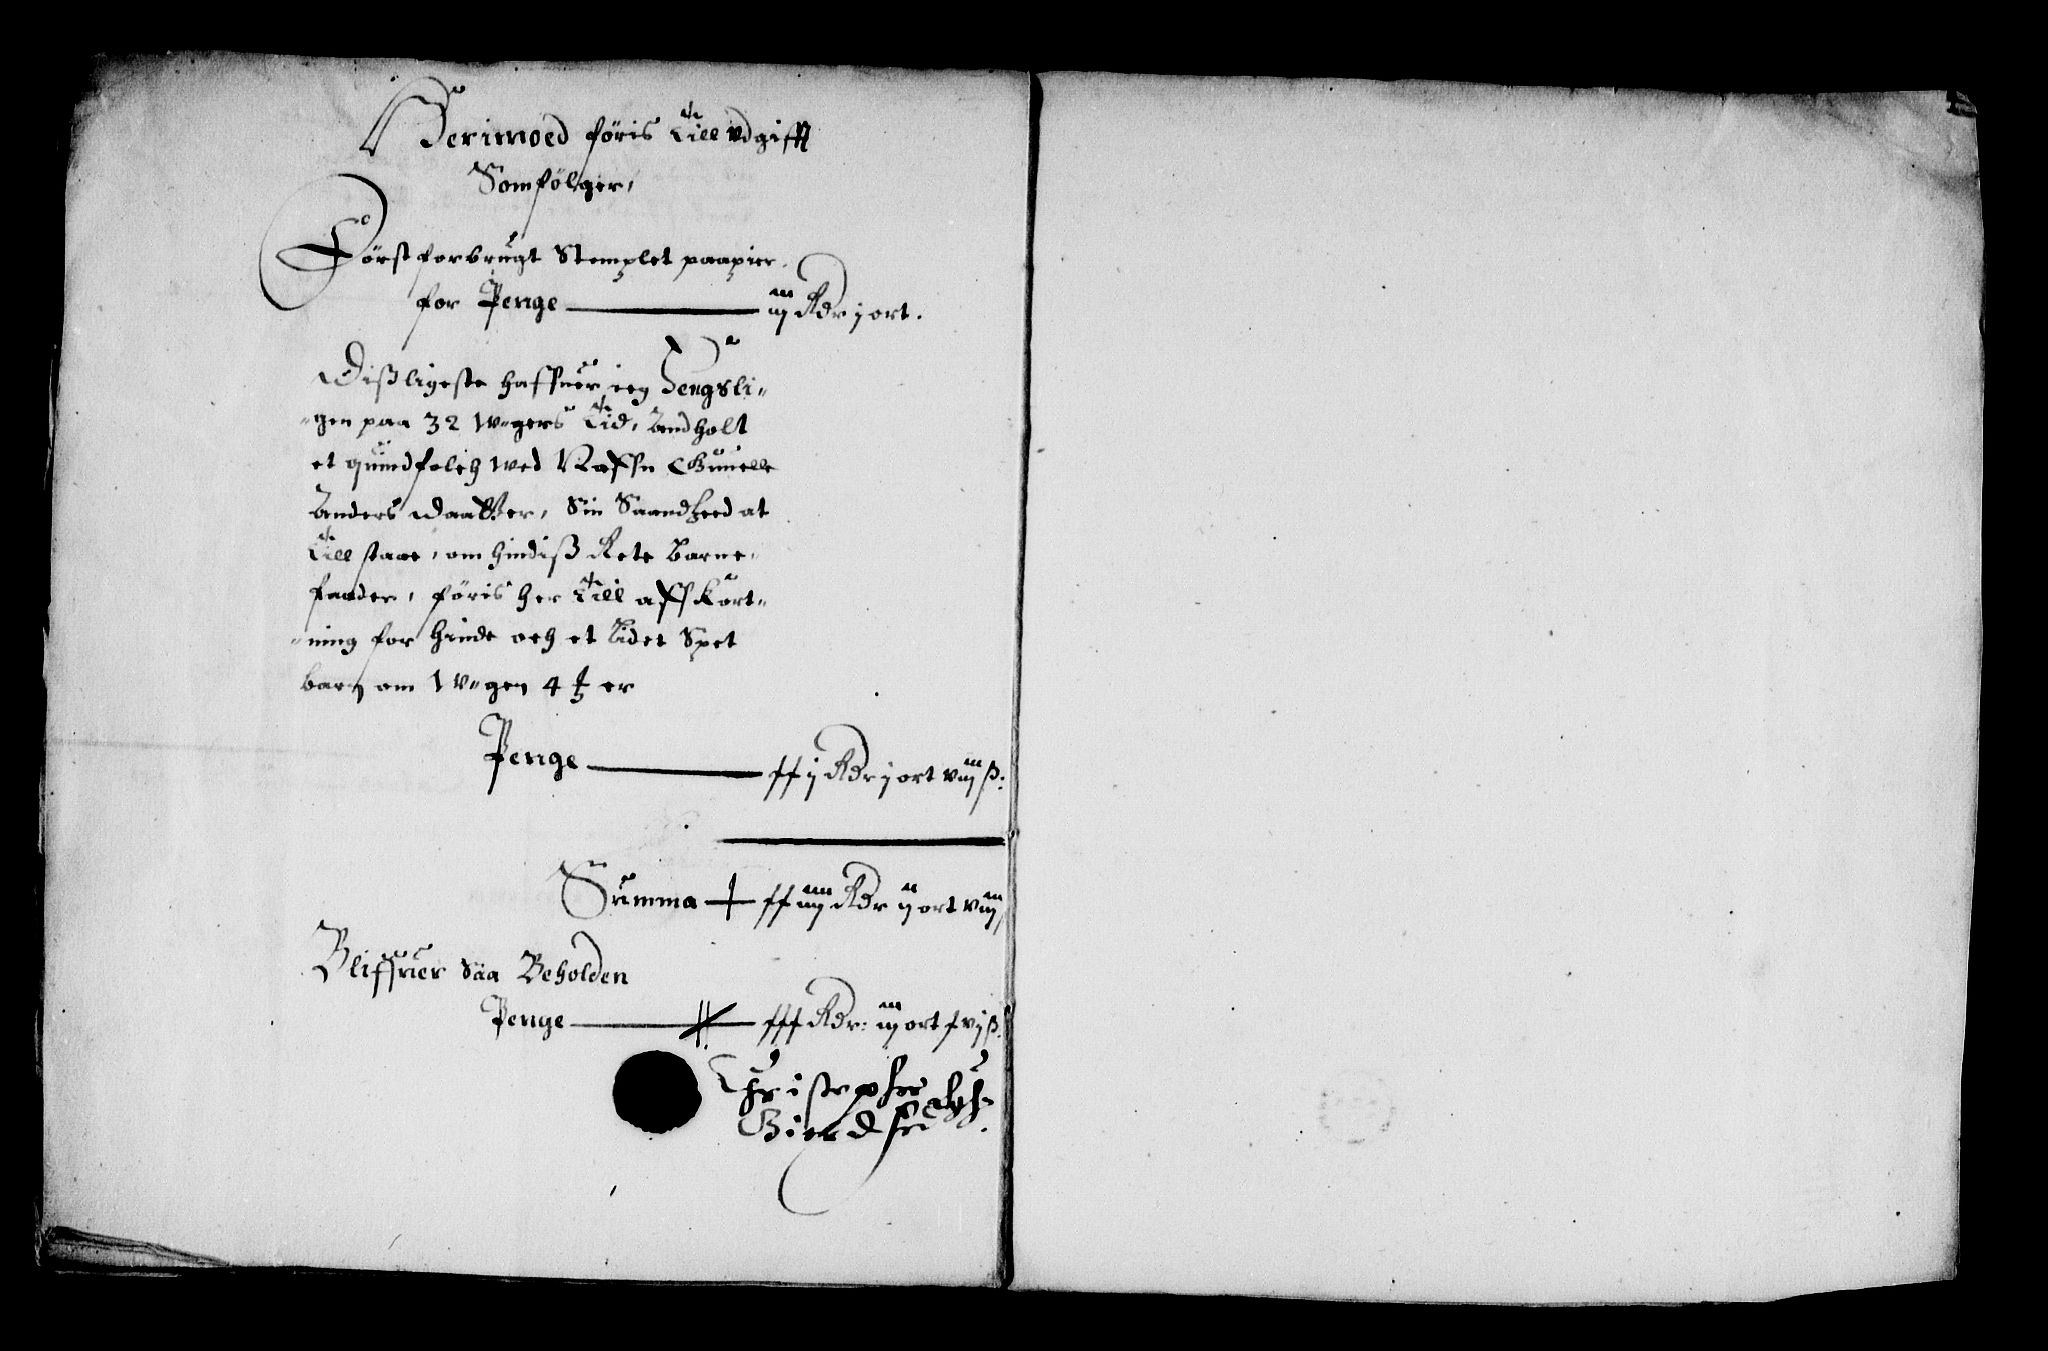 Herimoed føris till udgifft
Somfølger,
Først forbrugt Stemplet paapier
for Penge — iij Rdr j ort.
Dißligeste haffuer ieg Fengsli-
-gen paa 32 wgers tid, Andholt
et quindfolch wed Naffn Gunelle
Anders Daatter, Sin Saandhed at
till staae, om hindiß Rete barne-
fander, føris her till affkort-
-ning for hinde och et lidet Spet
barn om wgen 4 er
Penge — xx j Rdr j ort viij ß:
Summa — xx iiij Rdr ij ort viij
Bliffuer Saa Beholden
Penge — xxx Rdr: iij ort xvj ß.
Christopher